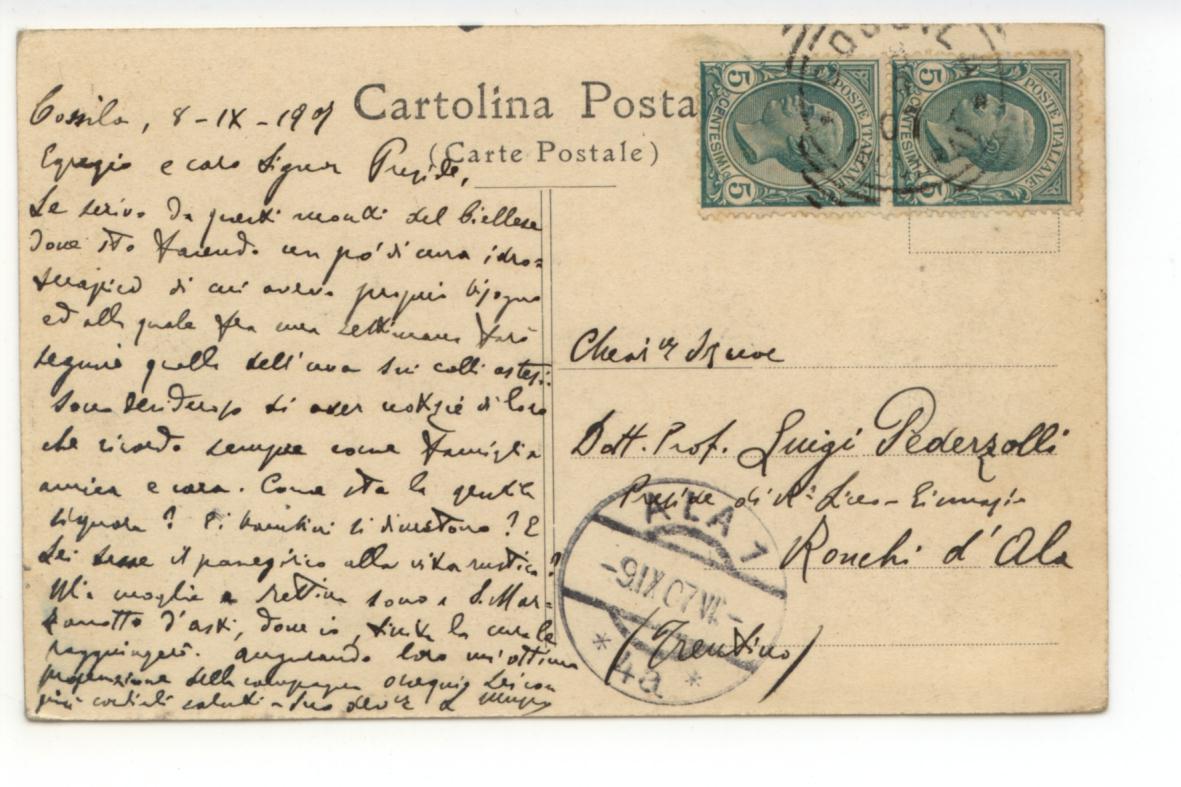 Cartolina Posta
(Carte Postale)
Cossila, 8-IX-1907
Egregio e caro Signor Preside,
Le scrivo da questi monti del biellese
dove sto facendo un po' di cura idro=
terapica di cui avevo proprio bisogno
ed alla quale fra una settimana farò
seguire quella dell'uva sui colli astesi.
Sono desideroso di aver notizie di loro
che ricordo sempre come famiglia
amica e cara. Come sta la gentile
signora? I bambini si divertono? E
Lei tesse il panegirico alla vita rustica?
Mia moglie e sono a S. Mar-
zanotto d'Asti, dove io, finita la cura le
raggiungerò. Augurando loro un'ottima
della campagna ossequio Lei con
più cordiali saluti - Suo dev.
5 CENTESIMI 5 POSTE ITALIANE
5 CENTESIMI 5 POSTE ITALIANE
Chiar Signore
Dott. Prof. Luigi Pederzolli
Preside di R. Liceo-Ginnasio
Ronchi d'Ala
(Trentino)
ALA 1
-9.IX.07.VI-
* 4a *